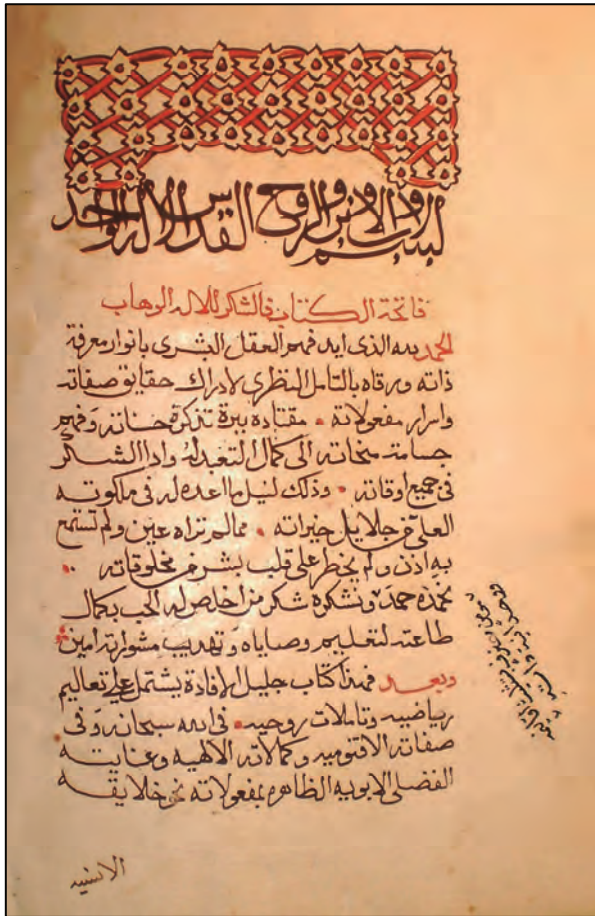 بسم الاب والابن والروح القدس الاله الواحد
فاتحة الكتاب في الشكر للاله الوهاب
الحمد لله الذى ايد فهم العقل البشرى بانوار معرفة
ذاته ورقاه بالتامل النظرى لادراك حقايق صفاته
واسرار مفعولاته • مقتاده بيرة تذكرة حسناته وفهم
جسامة منحاته الى كمال التعبد له وادا الشكر
فى جميع اوقاته • وذلك لنيل ما اعده له فى ملكوته
العلى من جلايل خيراته • مما لم تراه عين ولم تستمع
به اذن ولم يخطر على قلب بشر من مخلوقاته •
نحمده حمد ونشكره شكر من اخلص له الحب بكمال
طاعته لتعليم وصاياه وتهديب مشوارته امين
وبعد فهذا كتاب جليل الافادة يشتمل على تعاليم
رياضيه وتاملات روحيه • فى الله سبحانه وفى
صفاته الاقنوميه وكمالاته الالهيه وعنايته
الفضلى الابويه الظاهره بمفعولاته نحو خلايقه
الانسيه